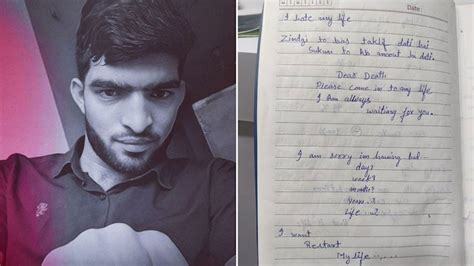 Date:
I hate my life
Zindgi to bas taklif deti hai
Sukun to deti.
Dear Death
Please come in to my life
I Am always
waiting for you.
I am sorry im but...
day?
week?
months?
Years.?
Life
I want
Restart
My life ......